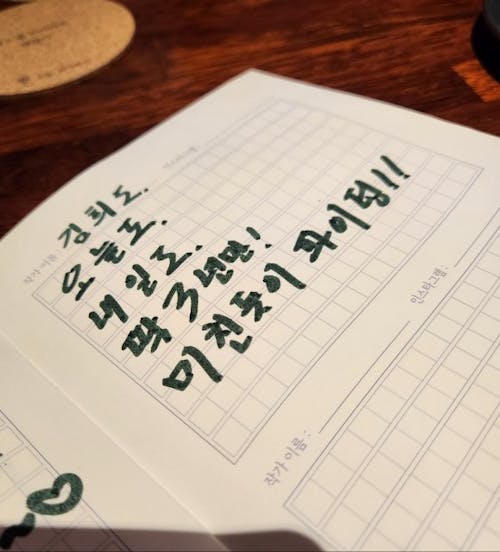 작가 이름: 김희도.
인스타그램:
오늘도.
내일도.
딱 3년만!
미친듯이 화이팅!!
작가 이름:
인스타그램: